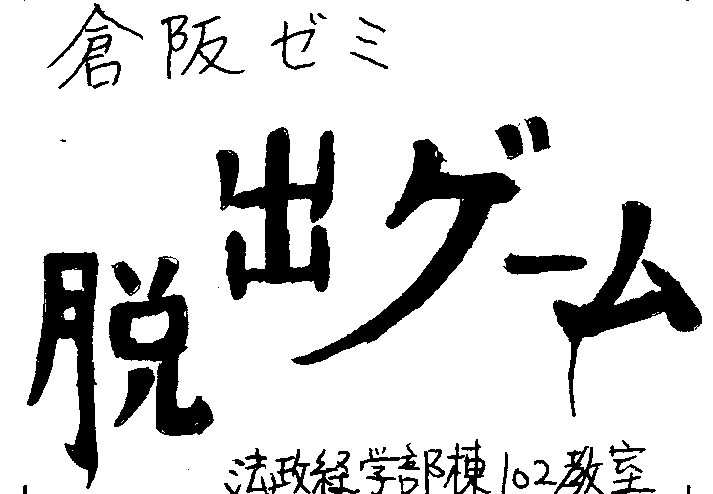 倉阪ゼミ
脱出ゲーム
法政経学部棟102教室